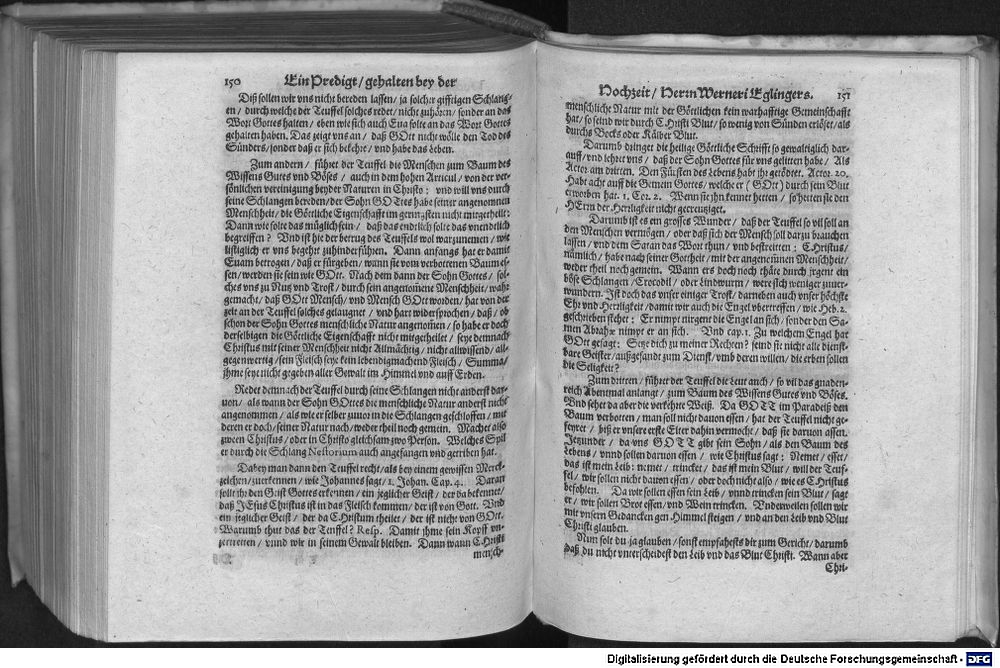 150 Ein Predigt / gehalten bey der
Diß sollen wir vns nicht bereden lassen / ja solcher gifftigen Schlang-
en / durch welche der Teuffel solches redet / nicht zuhören / sonder an das
Wort Gottes halten / eben wie sich auch Eua solte an das Wort Gottes
gehalten haben. Das zeigt vns an / daß GOtt nicht wölle den Tod des
Sünders / sonder daß er sich bekehre / vnd habe das Leben.
Zum andern / führet der Teuffel die Menschen zum Baum des
Wissens Gutes vnd Böses / auch in dem hohen Articul / von der per-
sönlichen vereinigung beyder Naturen in Christo : vnd will vns durch
seine Schlangen bereden / der Sohn GOttes habe seiner angenomnen
Menschheit / die Göttliche Eigenschafft im geringsten nicht mitgetheilt:
Dann wie solte das müglich sein / daß das endtlich solte das vnendtlich
begreiffen ? Vnd ist hie der betrug des Teuffels wol warzunemen / wie
listiglich er vns begert zuhinderführen. Dann anfangs hat er damit
Euam betrogen / daß er fürgeben / wann sie vom verbottenen Baum es-
sen / werden sie sein wie GOtt. Nach dem dann der Sohn Gottes / sol-
ches vns zu Nutz vnd Trost / durch sein angenom̃ne Menschheit / wahr
gemacht / daß GOtt Mensch / vnd Mensch GOtt worden / hat von der
zeit an der Teuffel solches gelaugnet / vnd hart widersprochen / daß / ob
schon der Sohn Gottes menschliche Natur angenom̃en / so habe er doch
derselbigen die Göttliche Eigenschafft nicht mitgetheilet / seye demnach
Christus mit seiner Menschheit nicht Allmächtig / nicht allwissend / all-
gegenwertig / sein Fleisch seye kein lebendigmachend Fleisch / Summa /
ihme seye nicht gegeben aller Gewalt im Himmel vnd auff Erden.
Redet demnach der Teuffel durch seine Schlangen nicht anderst dar-
uon / als wann der Sohn GOttes die menschliche Natur anderst nicht
angenommen / als wie er selber zuuor in die Schlangen geschloffen / mit
deren er doch / seiner Natur nach / weder theil noch gemein. Machet also
zween Christus / oder in Christo gleichsam zwo Person. Welches Spil
er durch die Schlang Nestorium auch angefangen vnd getriben hat.
Dabey man dann den Teuffel recht / als bey einem gewissen Merck-
zeichen / zuerkennen / wie Johannes sagt / 1. Johan. Cap. 4. Daran
sollt ihr den Geist Gottes erkennen / ein jeglicher Geist / der da bekennet /
daß JEsus Christus ist in das Fleisch kommen / der ist von Gott. Vnd
ein jeglicher Geist / der da CHristum theilet / der ist nicht von GOtt.
Warumb thut das der Teuffel ? Resp. Damit ihme sein Kopff vn-
zertretten / vnnd wir in seinem Gewalt bleiben. Dann wann CHristi
mensch-
Hochzeit / Herrn Werneri Eglingers. 151
menschliche Natur mit der Göttlichen kein warhafftige Gemeinschafft
hat / so seind wir durch CHristi Blut / so wenig von Sünden erlöset / als
durchs Bocks oder Kälber Blut.
Darumb dringet die heilige Göttliche Schrifft so gewaltiglich dar-
auff / vnd lehret vns / daß der Sohn Gottes für vns gelitten habe / Als
Actor am dritten. Den Fürsten des Lebens habt ihr getödtet. Actor. 20.
Habt acht auff die Gemein Gottes / welche er ( GOtt ) durch sein Blut
erworben hat. 1. Cor. 2. Wenn sie jhn kenner hetten / so hetten sie den
HErrn der Herrligkeit nicht gecreutziget.
Darumb ist es ein grosses Wunder / daß der Teuffel so vil soll an
den Menschen vermögen / oder daß sich der Mensch soll darzu brauchen
lassen / vnd dem Satan das Wort thun / vnd bestreitten : CHristus /
nämlich / habe nach seiner Gottheit / mit der angenom̃nen Menschheit /
weder theil noch gemein. Wann ers doch noch thäte durch jrgent ein
böse Schlangen / Crocodil / oder Lindwurm / were sich weniger zuuer-
wundern. Ist doch das vnser einiger Trost / darneben auch vnser höchste
Ehr vnd Herrligkeit / damit wir auch die Engel vbertreffen / wie Heb. 2.
geschrieben stehet : Er nimpt nirgent die Engel an sich / sonder den Sa-
men Abrahæ nimpt er an sich. Vnd cap. 1. Zu welchem Engel hat
GOtt gesagt: Setze dich zu meiner Rechten? seind sie nicht alle dienst-
bare Geister / außgesandt zum Dienst / vmb deren willen / die erben sollen
die Seligkeit ?
Zum dritten / führet der Teuffel die Leut auch / so vil das gnaden-
reich Abentmal anlangt / zum Baum des Wissens Gutes vnd Böses.
Vnd sehet da aber die verkehrte Weiß. Da GOTT im Paradeiß den
Baum verbotten / man soll nicht dauon essen / hat der Teuffel nicht ge-
feyret / biß er vnsere erste Elter dahin vermocht / daß sie daruon assen.
Jetzunder / da vns GOTT gibt sein Sohn / als den Baum des
Lebens / vnnd sollen daruon essen / wie Christus sagt : Nemet / esset /
das ist mein Leib : nemet / trincket / das ist mein Blut / will der Teuf-
fel / wir sollen nicht dauon essen / oder doch nicht also / wie es CHristus
befohlen. Da wir sollen essen sein Leib / vnnd trincken sein Blut / sagt
er / wir sollen Brot essen / vnd Wein trincken. Vnderweilen sollen wir
mit vnsern Gedancken gen Himmel steigen / vnd an den Leib vnd Blut
Christi glauben.
Nun solt du ja glauben / sonst empfahests dir zum Gericht / darumb
daß du nicht vnterscheidest den Leib vnd das Blut Christi. Wann aber
Chri-
Digitalisierung gefördert durch die Deutsche Forschungsgemeinschaft - DFG